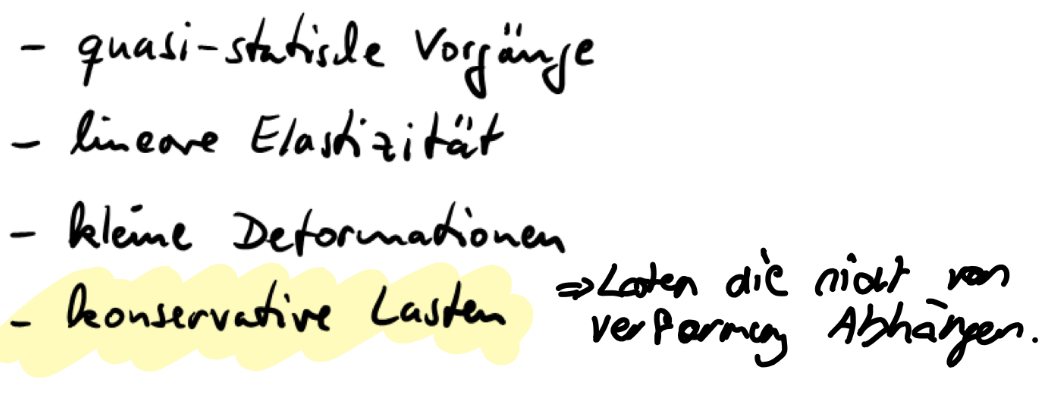 - quasi-statische Vorgänge
- lineare Elastizität
- kleine Deformationen
- konservative Lasten
⇒ Lasten die nicht von
verformung Abhängen.